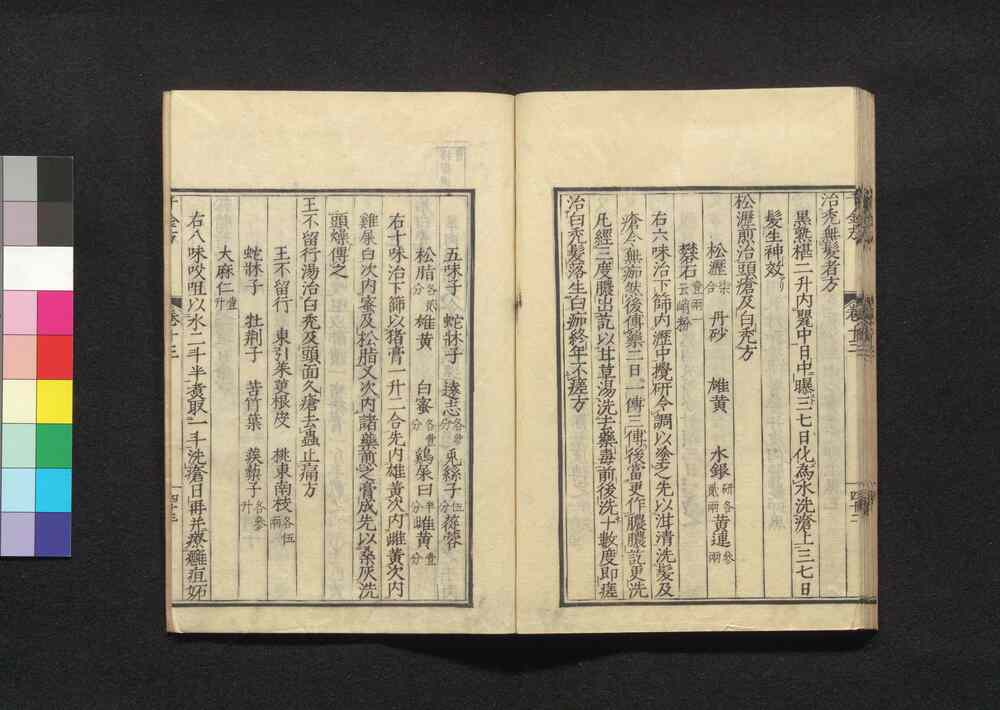 治禿無髮者方
黑熟椹二升内甖中日中曝三七日化為水洗瘡上三七日
髮生神效
松瀝煎治頭瘡及白禿方
松瀝 柒合 丹砂 雄黃 水銀 研各貳兩 黃連 參兩
礬石 壹兩 一云峭粉
右六味治下篩内瀝中攪研令調以塗之先以泔清洗髮及
瘡令無痂然後傅藥二日一傅三傅後當更作膿膿訖更洗
凡經三度膿出訖以甘草湯洗去藥毒前後洗十數度即瘥
治白禿髮落生白痂終年不瘥方
五味子 蛇牀子 遠志 各參分 兎絲子 伍分 蓯蓉
松脂 各貳分 雄黃 白蜜 各壹分 鷄屎白 半分 雌黃 壹分
右十味治下篩以猪膏一升二合先内雄黃次内雌黃次内
雞屎白次内蜜及松脂又次内諸藥煎之膏成先以桑灰洗
頭燥傅之
王不留行湯治白禿及頭面久瘡去蟲止痛方
王不留行 東引茱萸根皮 桃東南枝 各伍兩
蛇牀子 牡荆子 苦竹葉 蒺藜子 各參升
大麻仁 壹升
右八味㕮咀以水二斗半煮取一斗洗瘡日再并療癰疽妬